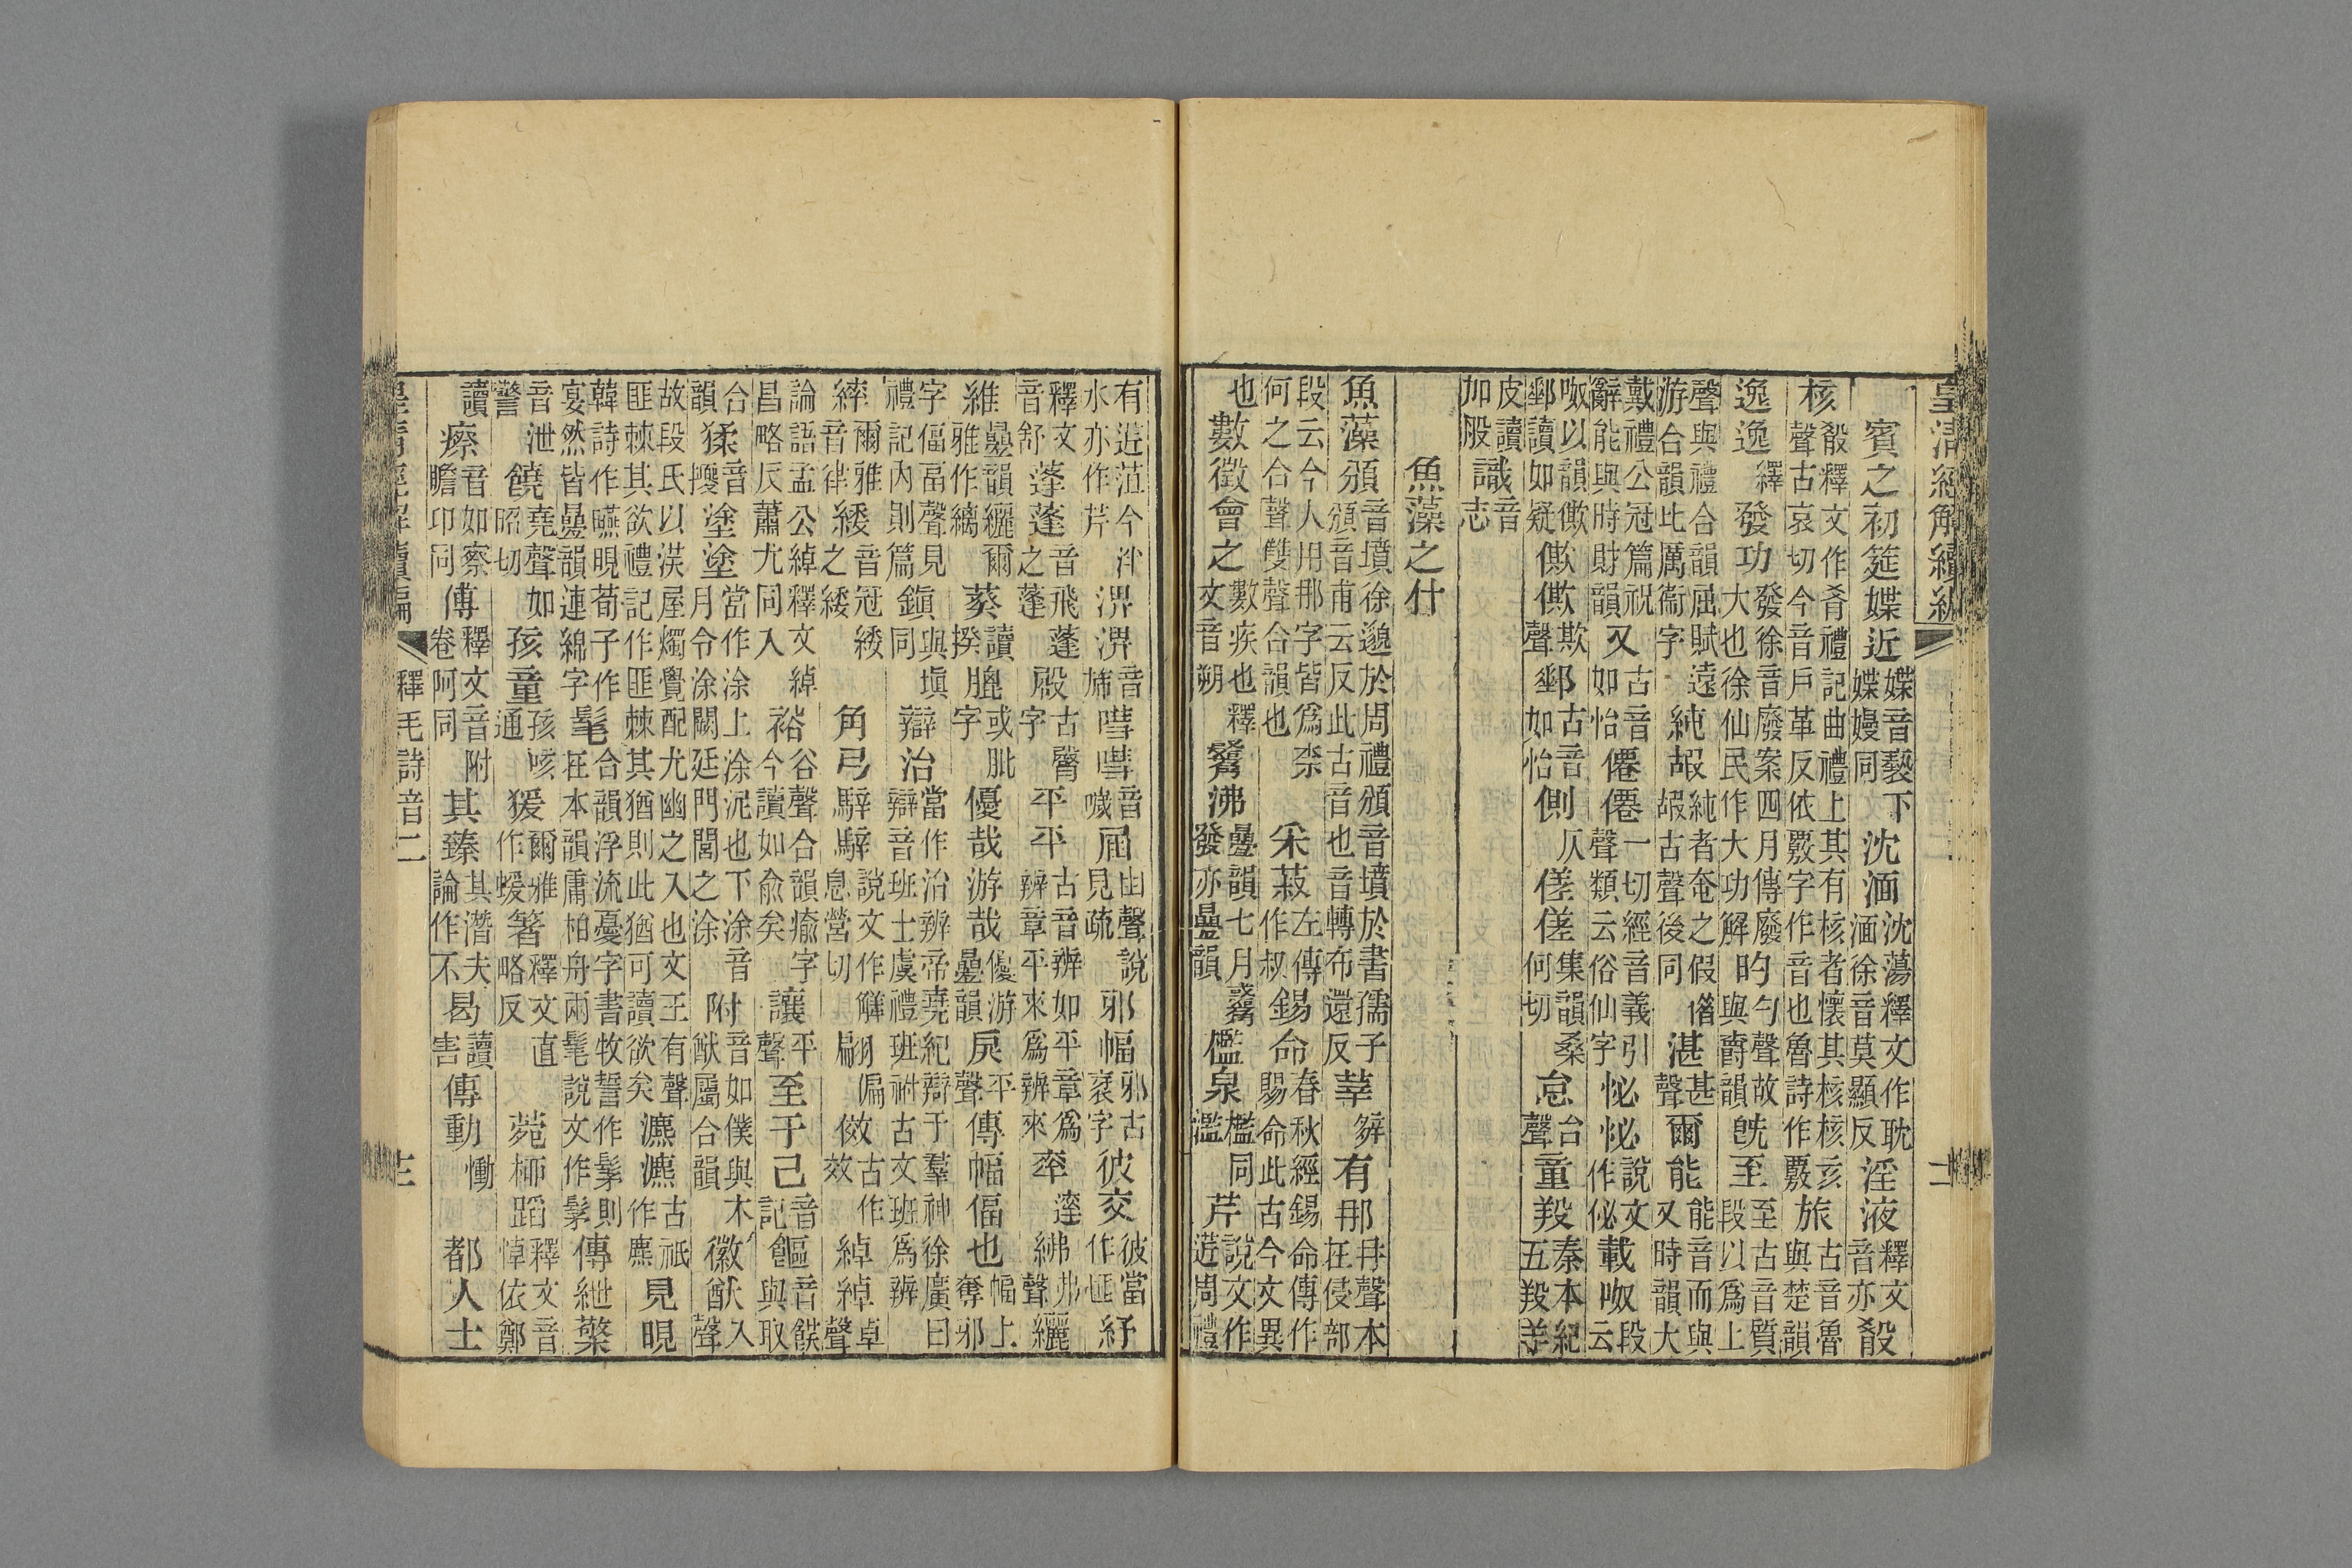 皇清經解續編
賓之初筵媟近媟音褻下媟嫚同沈湎沈蕩釋文作耽湎徐音莫顯反淫液釋文音亦殽
核殽釋文作肴禮記曲禮上其有核者懷其核核亥聲古哀切今音戶革反依覈字作音也魯詩作覈旅古音魯與楚韻
逸逸繹發功發徐音廢案四月傳廢大也徐仙民作大功解旳勺聲故與爵韻旣至至古音質段以爲上
聲與禮合韻屈賦遠游合韻此厲衞字純嘏純者奄之假嘏古聲後同僭湛甚聲爾能能音而與又時韻大
戴禮公冠篇祝辭能與時財韻又古音如怡僊僊一切經音義引聲類云俗仙字怭怭說文作佖載呶段云
呶以韻僛郵讀如疑僛僛欺聲郵古音如怡側仄傞傞集韻桑何切怠台聲童羖秦本紀五羖羊
皮讀加股識音志
魚藻之什
魚藻頒音墳徐邈於周禮頒音墳於書孺子頒音甫云反此古音也音轉布還反莘觲有那冄聲本在侵部
段云今人用那字皆爲柰何之合聲雙聲合韻也采菽左傳作叔錫命春秋經錫命傳作賜命此古今文異
也數徵會之數疾也釋文音朔觱沸疊韻七月觱發亦疊韻檻泉檻同濫芹說文作䒢周禮
有䒢菹今水亦作芹淠淠音旆嘒嘒音噦屆凷聲說見疏邪幅邪古衺字彼交彼當作匪紓
釋文音舒蓬蓬音飛蓬之蓬殿古臀字平平古音辨如平章辨章平來爲辨來率達紼弗聲纚
維疊韻纚爾雅作縭葵讀揆膍或肶字優哉游哉優游疊韻戾平聲傳幅偪也幅上奪邪
字偪畐聲見禮記內則篇鎭與塡同辯治當作治辨帝堯紀辯于羣神徐廣曰辯音班士虞禮班祔古文班爲辨
綍爾雅音律緌音冠緌之緌角弓騂騂說文作觲息營切翩偏傚古作效綽綽卓聲
論語孟公綽釋文綽昌略反蕭尤同入裕谷聲合韻瘉字今讀如兪矣讓平聲至于己音記饇音餩與取
合韻猱音擾塗塗當作涂上涂泥也下涂音月令涂闕廷門閭之涂附音如僕與木屬合韻徽猷入聲
故段氏以渼屋燭覺配尤幽之入也文王有聲匪棘其欲禮記作匪棘其猶則此猶可讀欲矣瀌瀌古祇作麃見晛
韓詩作曣晛荀子作宴然皆疊韻連綿字髦合韻浮流憂字書牧誓作髳則在本韻鄘柏舟兩髦說文作髳傳紲檠
音泄警饒堯聲如昭切孩童孩咳通猨爾雅作蝯箸釋文直略反菀柳蹈釋文音悼依鄭
讀瘵音如察瞻卬同傅釋文音附卷阿同其臻其潛夫論作不曷讀害傳動慟都人士
皇清經解續編
釋毛詩音二